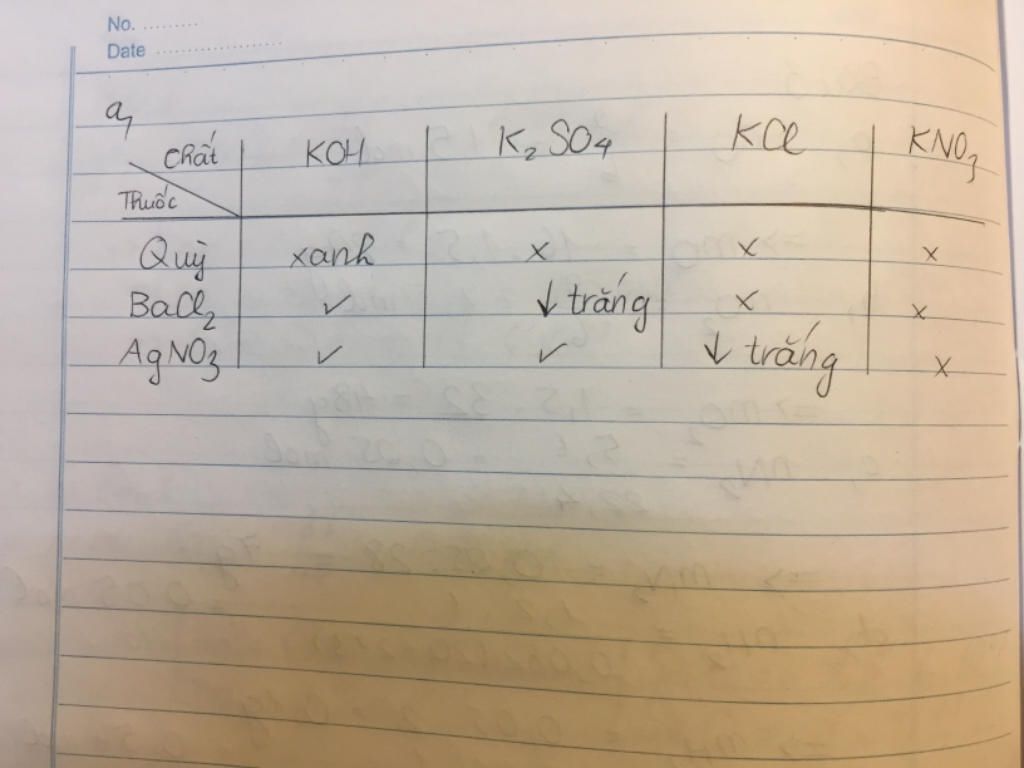 No. .........
Date ....................
a,
Chất KOH K₂SO₄ KCl KNO₃
Thuốc
Quỳ xanh x x x
BaCl₂ ✓ ↓ trắng x x
AgNO₃ ✓ ✓ ↓ trắng x